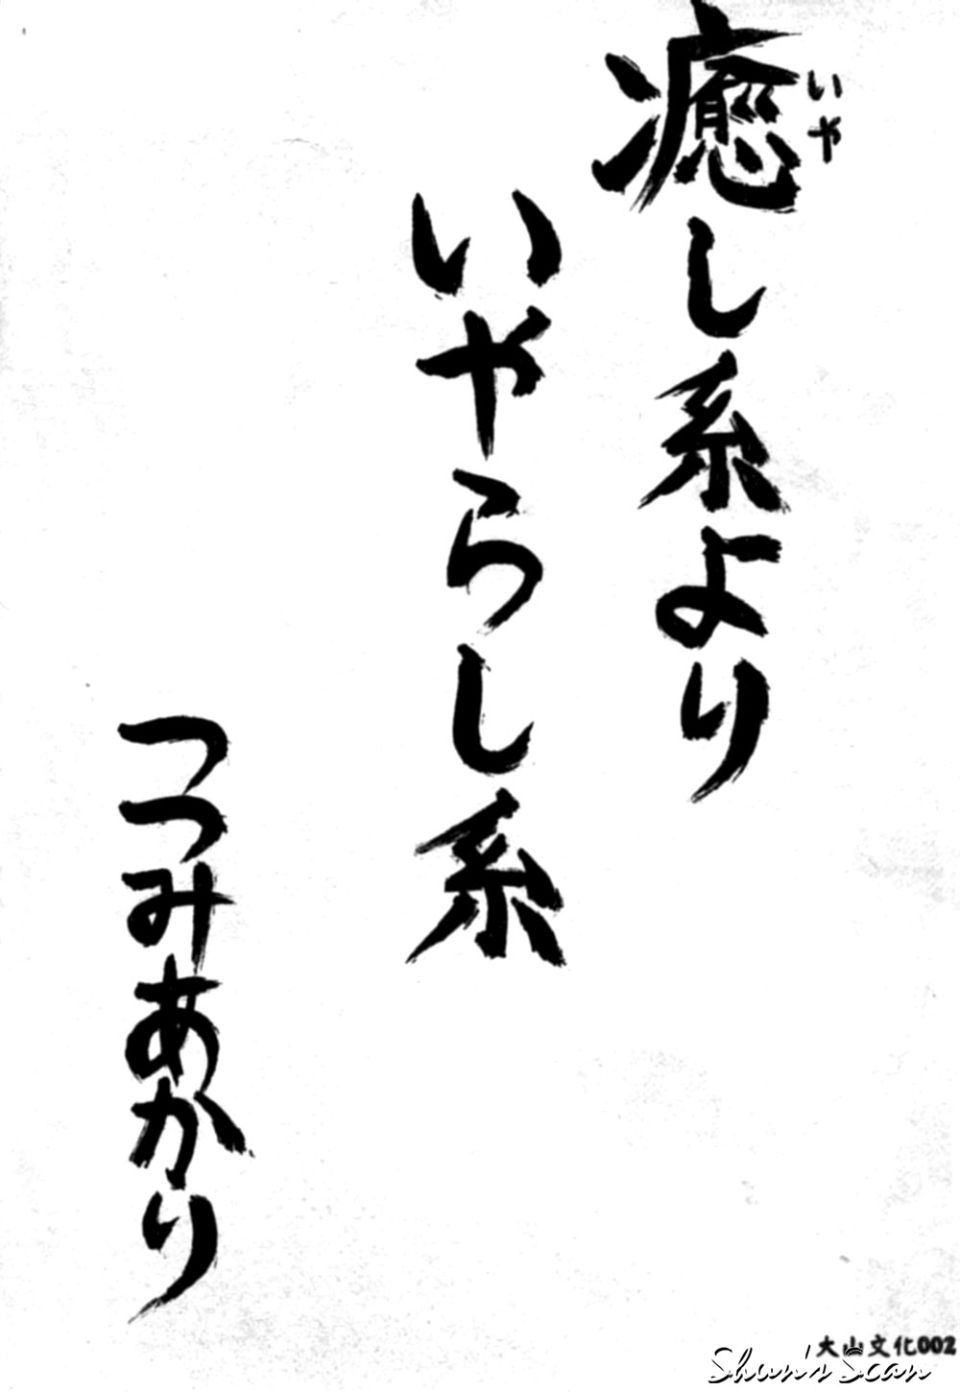 癒し系より
いや
いやらし系
つつみあかり
大山文化002
Shan'n Scan